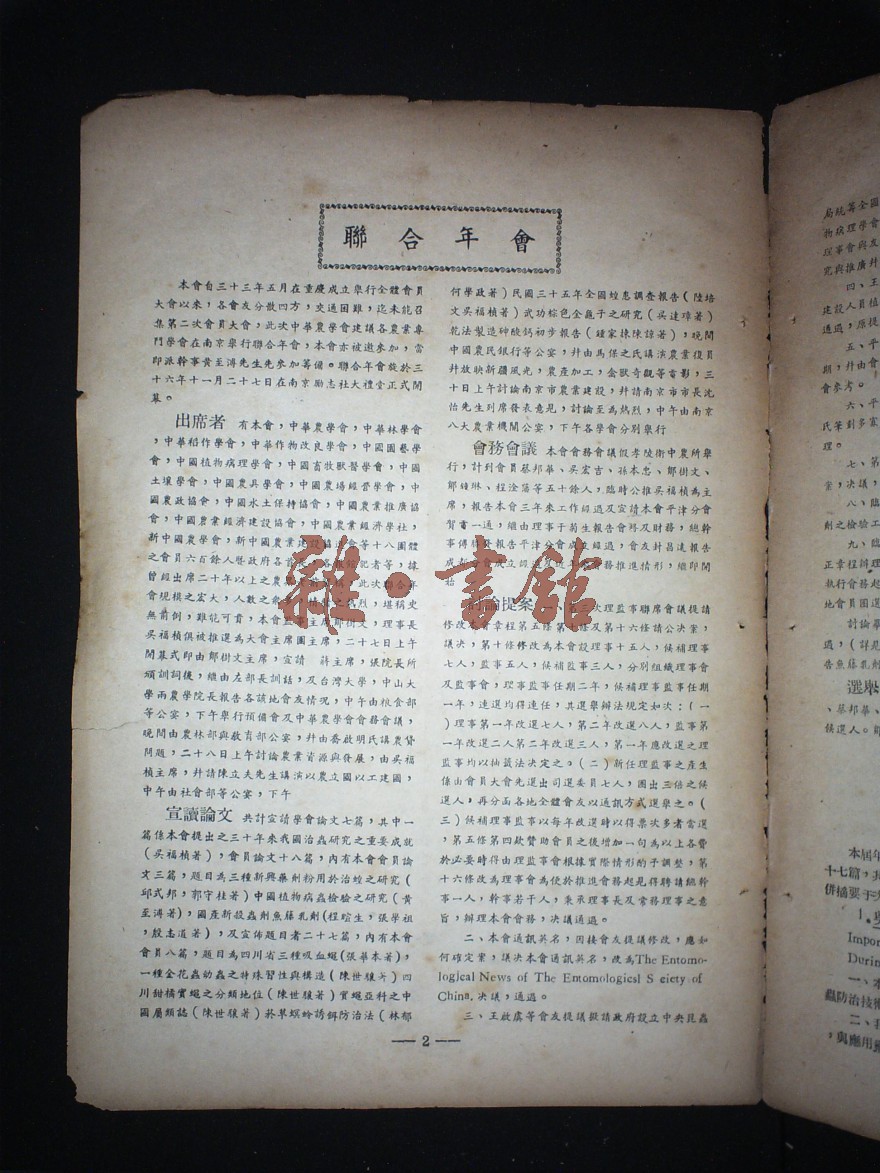 聯合年會
本會自三十三年五月在重慶成立舉行全體會員
大會以來，各會友分散四方，交通困難，迄未能召
集第二次會員大會，此次中華農學會建議各農業專
門學會在南京舉行聯合年會，本會亦被邀參加，當
即派幹事黃至溥先生先參加籌備。聯合年會旋於三
十六年十一月二十七日在南京勵志社大禮堂正式開
幕。
出席者 有本會，中華農學會，中華林學會
，中華稻作學會，中華作物改良學會，中國園藝學
會，中國植物病理學會，中國畜牧獸醫學會，中國
土壤學會，中國農具學會，中國農場經營學會，中
國農政協會，中國水土保持協會，中國農業推廣協
會，中國農業經濟建設協會，中國農業經濟學社，
新中國農學會，新中國農業建設協進會等十八團體
之會員六百餘人暨政府各首長，各報館記者等，據
曾經出席二十年以上之農 此次聯合年
會規模之宏大，人數之眾 烈，堪稱史
無前例，難能可貴，本會監事主席鄒樹文，理事長
吳福楨俱被推選為大會主席團主席，二十七日上午
開幕式即由鄒樹文主席，宣讀 蔣主席，張院長所
頒訓詞後，繼由左部長訓話，及台灣大學，中山大
學兩農學院長報告各該地會友情況，中午由粮食部
等公宴，下午舉行預備會及中華農學會會務會議，
晚間由農林部與教育部公宴，幷由喬啟明氏講農貸
問題，二十八日上午討論農業資源與發展，由吳福
楨主席，幷請陳立夫先生講演以農立國以工建國，
中午由社會部等公宴，下午
宣讀論文 共計宣讀學會論文七篇，其中一
篇係本會提出之三十年來我國治蟲研究之重要成就
(吳福楨著)，會員論文十八篇，內有本會會員論
文三篇，題目為三種新興藥劑粉用於治蝗之研究(
邱式邦，郭守桂著)中國植物病蟲檢驗之研究(黃
至溥著)，國產新殺蟲劑魚藤乳劑(程暄生，張學祖
，殷志道著)，及宣佈題目者二十七篇，內有本會
會員八篇，題目為四川省三種吸血蠅(張華本著)，
一種金花蟲幼蟲之特殊習性與構造(陳世驤著)四
川甜橘實蠅之分類地位(陳世驤著)實蠅亞科之中
國屬類誌(陳世驤著)菸草螟蛉誘餌防治法(林郁
何學政著)民國三十五年全國蝗患調查報告(陸培
文吳福楨著)武功棕色金龜子之研究(吳達璋著)
乾法製造砷酸鈣初步報告(鍾家揀陳諒著)，晚間
中國農民銀行等公宴，幷由馬保之氏講演農業復員
幷放映新疆風光，農產加工，禽獸奇觀等電影，三
十日上午討論南京市農業建設，幷請南京市市長沈
怡先生列席發表意見，討論至為熱烈，中午由南京
八大農業機關公宴，下午各學會分別舉行
會務會議 本會會務會議假孝陵衛中農所舉
行，計到會員蔡邦華、吳宏吉、孫本忠、鄒樹文、
鄒鍾琳、程淦藩等五十餘人，臨時公推吳福楨為主
席，報告本會三年來工作經過及宣讀本會平津分會
賀書一通，繼由理事于菊生報告會務及財務，總幹
事傅勝發報告平津分會成立經過，會友封昌遠報告
成都分會成立經過及近年 務推進情形，繼即開
始
討論提案 一、第三次理監事聯席會議提請
修改本會章程第五條第十條及第十六條請公決案，
議決，第十條修改為本會設理事十五人，候補理事
七人，監事五人，候補監事三人，分別組織理事會
及監事會，理事監事任期二年，候補理事監事任期
一年，連選均得連任，其選舉辦法規定如次：(一
)理事第一年改選七人，第二年改選八人，監事第
一年改選二人第二年改選三人，第一年應改選之理
監事均以抽籤法決定之。(二)新任理監事之產生
係由會員大會先選出司選委員七人，圈出三倍之候
選人，再分函各地全體會友以通訊方式選舉之。(
三)候補理監事以每年改選時以得票次多者當選
，第五條第四欵贊助會員之後增加一句為以上各費
於必要時得由理監事會根據實際情形酌予調整，第
十六條改為理事會為便於推進會務起見得聘請總幹
事一人，幹事若干人，秉承理事長及常務理事之意
旨，辦理本會會務，決議通過。
二、本會通訊英名，因接會友提議修改，應如
何確定案，議決本會通訊英名，改為The Entomo-
logical News of The Entomological S ciety of
China，決議，通過。
三、王啟虞等會友提議擬請政府設立中央昆蟲
— 2 —
局統籌全國
物病理學會
理事會與友
究與推廣幷
四、王
建設人員植
通過，原提
五、平
期，幷由會
會參考。
六、平
氏筆劃多寡
理。
七、第
案，決議，
八、臨
劑之檢驗工
九、臨
正章程辦理
執行會務起
地會員圈選
討論畢
過，(詳見
告魚藤乳劑
選舉
、蔡邦華、
候選人。
本屆年
十七篇，
併摘要于
1.
Impor
Durin
一、本
蟲防治技術
二、我
，與應用